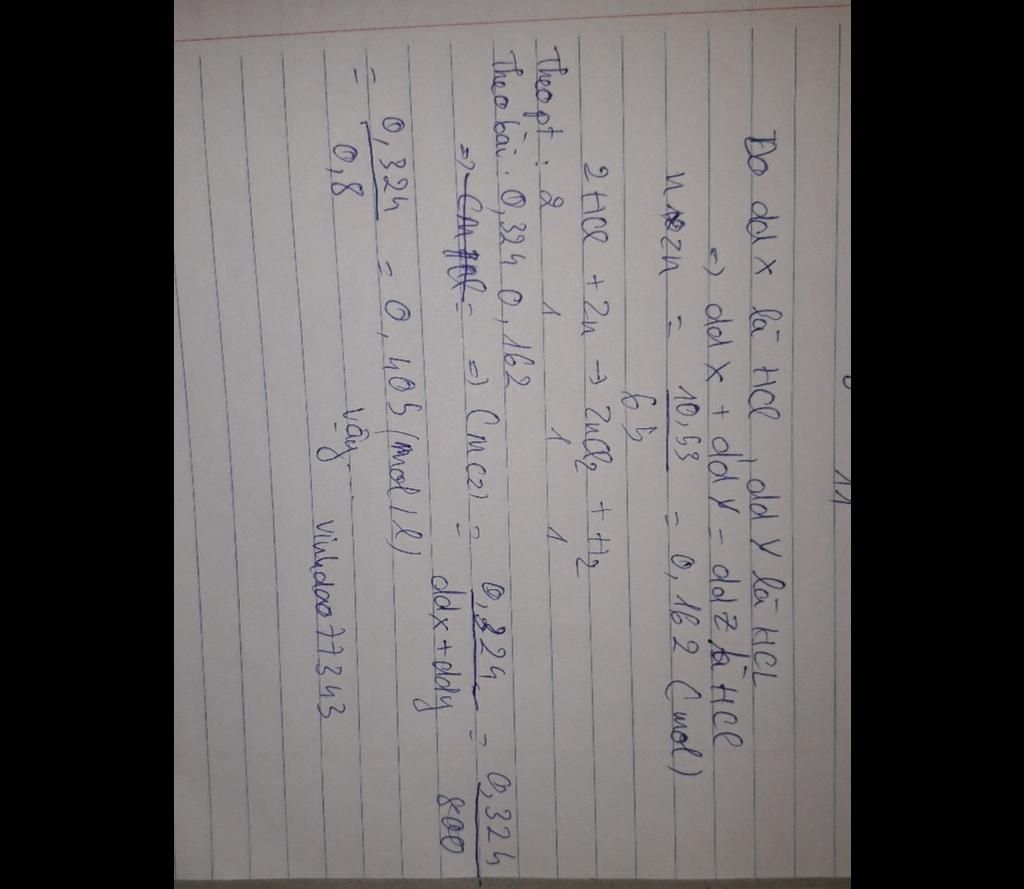 11
Do dd X là HCl, dd Y là HCl
=> dd X + dd Y = dd Z là HCl
n Zn = 10,53 / 65 = 0,162 (mol)
2HCl + Zn → ZnCl2 + H2
Theo pt : 2 1 1 1
Theo bài : 0,324 0,162
=> CM = => CM (Z) = 0,324 / ddx + ddy = 0,324 / 800
= 0,324 / 0,8 = 0,405 (mol/l)
vậy vinhdao77343